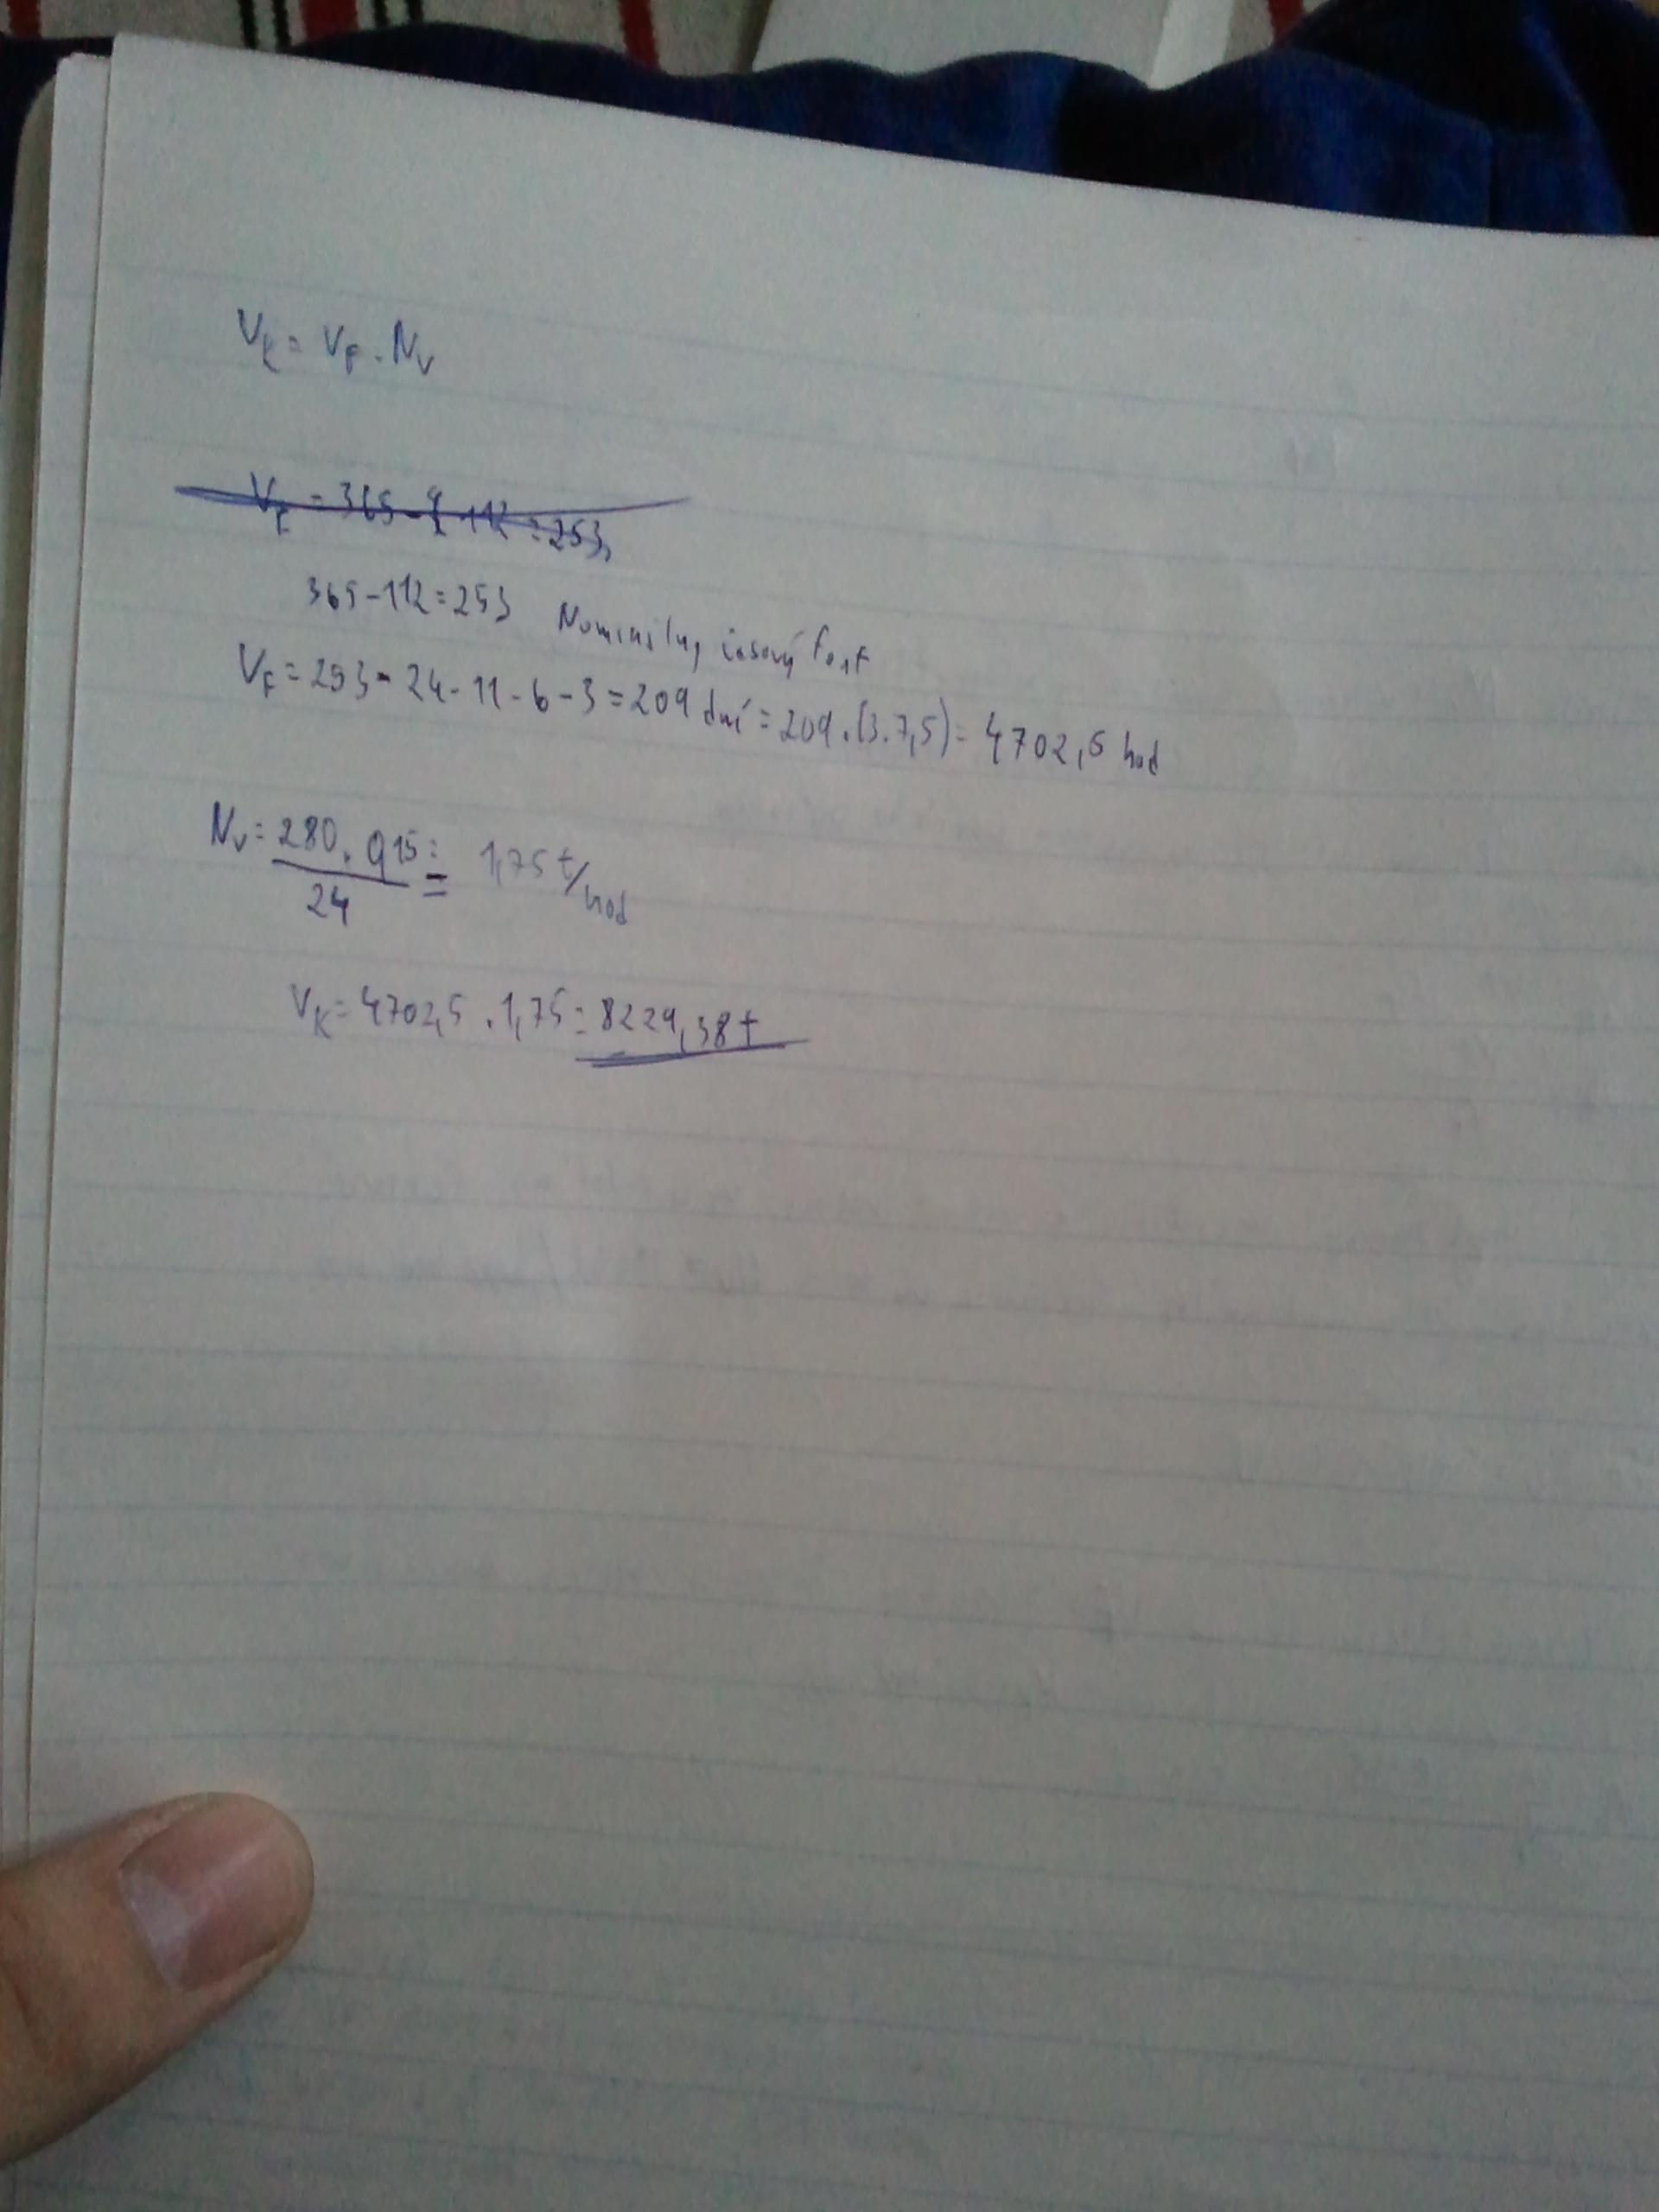 V_K = V_F . N_V
V_F = 365 - 112 = 253,
365-112=253 Nominálny časový font
V_F = 253 - 24 - 11 - 6 - 3 = 209 dní = 209.(3.7,5) = 4702,5 hod
N_V = 280 . 0,15 = 1,75 t/hod
24
V_K = 4702,5 . 1,75 = 8229,38 t